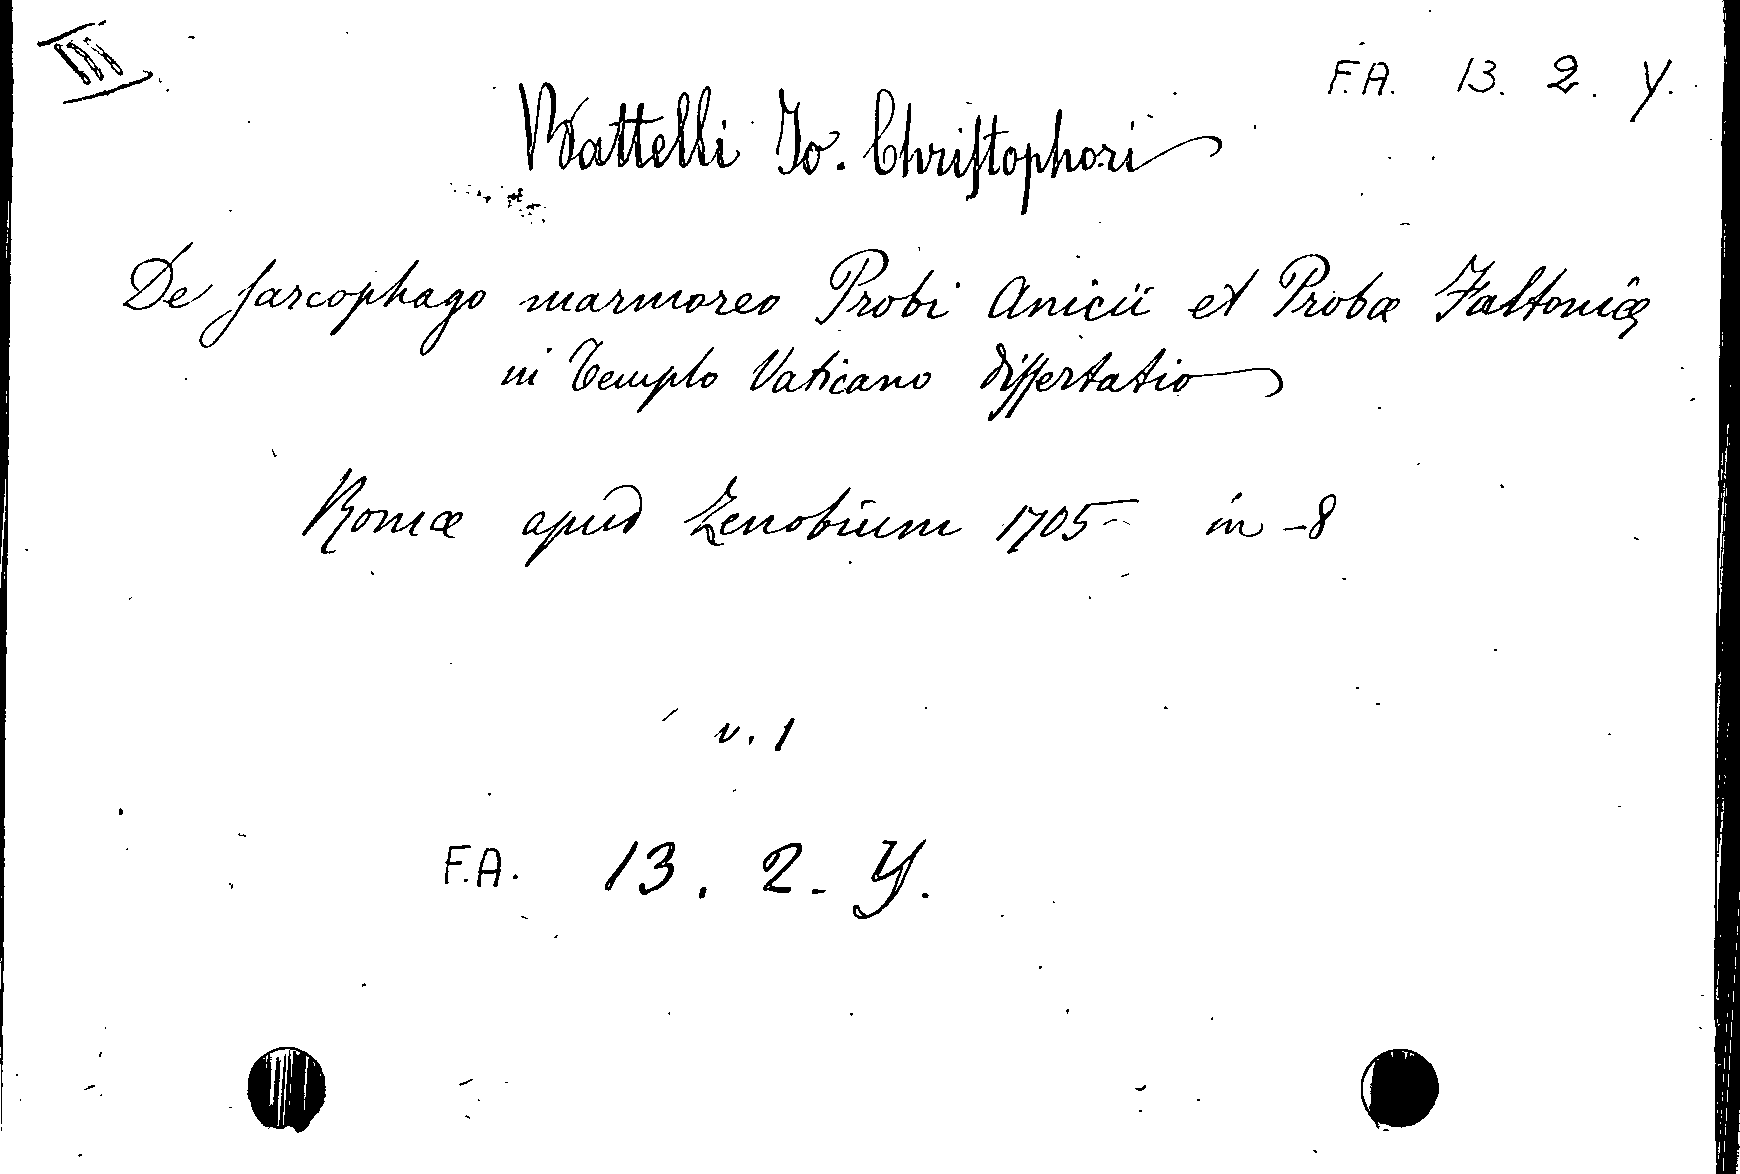 III
F.A. 13. 2. Y.
Battelli Jo. Chriſtophori
De ſarcophago marmoreo Probi Anicii et Probæ Faltoniæ
in Templo Vaticano diſſertatio
Romæ apud Zenobium 1705 in-8
v. 1
F.A. 13. 2. Y.